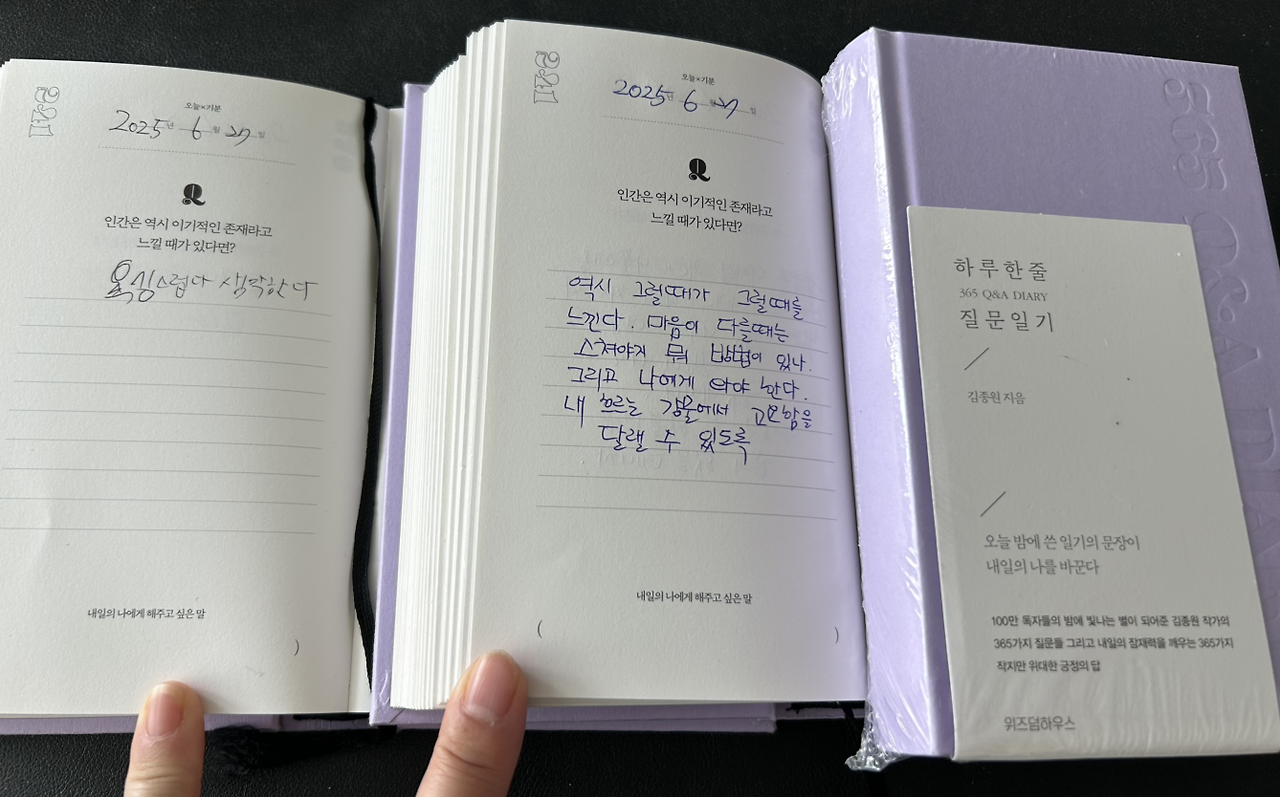 241
오늘×기분
2025년 6월 27일
Q
인간은 역시 이기적인 존재라고
느낄 때가 있다면?
욕심스럽다 생각한다
내일의 나에게 해주고 싶은 말
)
241
오늘×기분
2025년 6월 27일
Q
인간은 역시 이기적인 존재라고
느낄 때가 있다면?
역시 그럴때가 그럴때를
느낀다. 마음이 다를때는
스쳐야지 뭐 방법이 있나.
그리고 나에게 와야 한다.
내 흐르는 강물에서 고요함을
달랠 수 있도록
내일의 나에게 해주고 싶은 말
( )
365 Q&A DIA
하루 한 줄
365 Q&A DIARY
질문일기
김종원 지음
오늘 밤에 쓴 일기의 문장이
내일의 나를 바꾼다
100만 독자들의 밤에 빛나는 별이 되어준 김종원 작가의
365가지 질문들 그리고 내일의 잠재력을 깨우는 365가지
작지만 위대한 긍정의 답
위즈덤하우스